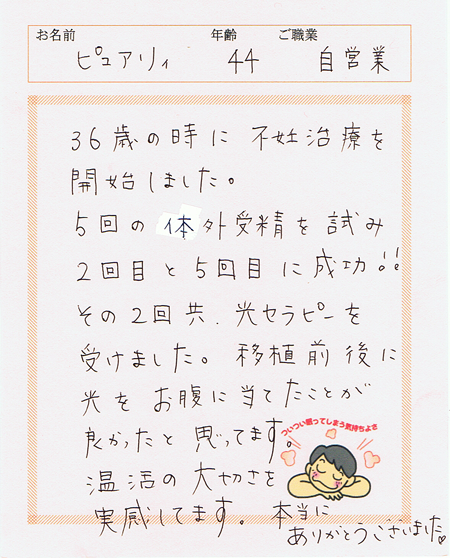 お名前 年齢 ご職業
ピュアリィ 44 自営業
36歳の時に 不妊治療を
開始しました。
5回の 体外受精を試み
2回目と5回目に成功!!
その2回共、光セラピーを
受けました。移植前後に
光をお腹に当てたことが
良かったと思ってます。
ついつい眠ってしまう気持ちよさ
温活の大切さを
実感してます。本当に
ありがとうございました♡